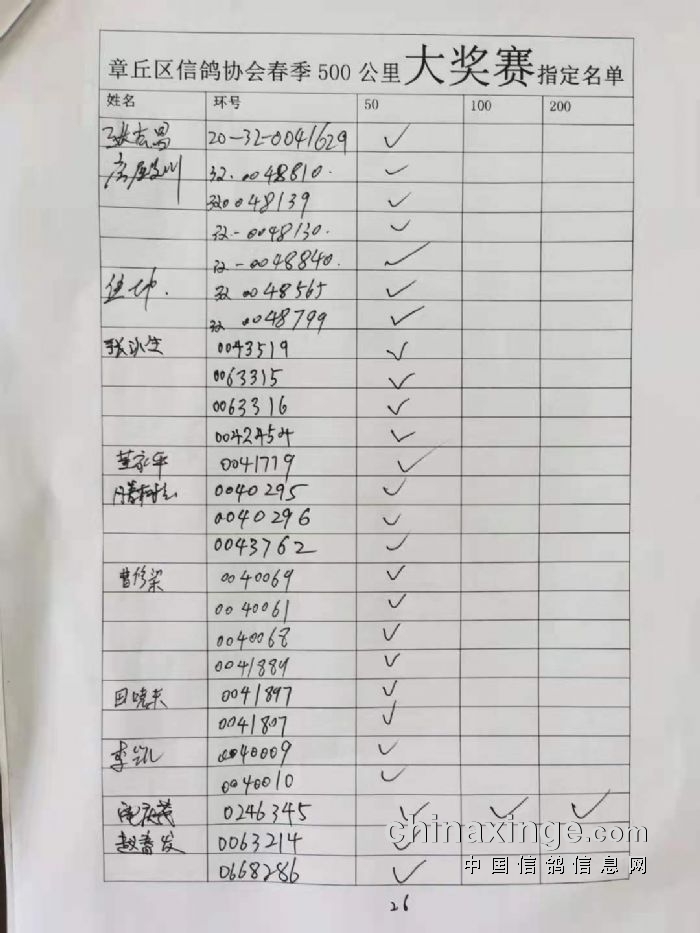 章丘区信鸽协会春季500公里大奖赛指定名单
姓名 环号 50 100 200
20-32-0041629 ✓
32.0048810. ✓
0048139 ✓
-0048130. ✓
-0048840. ✓
0048565 ✓
0048799 ✓
0043519 ✓
0063315 ✓
0063316 ✓
0042454 ✓
0041719 ✓
0040295 ✓
0040296 ✓
0043762 ✓
曹修梁 0040069 ✓
0040061 ✓
0040068 ✓
0041889 ✓
田曉东 0041897 ✓
0041807 ✓
李凯 0040009 ✓
0040010 ✓
0246345 ✓ ✓ ✓
赵春发 0063214 ✓
0668286 ✓
chinaxinge.com
中国信鸽信息网
26